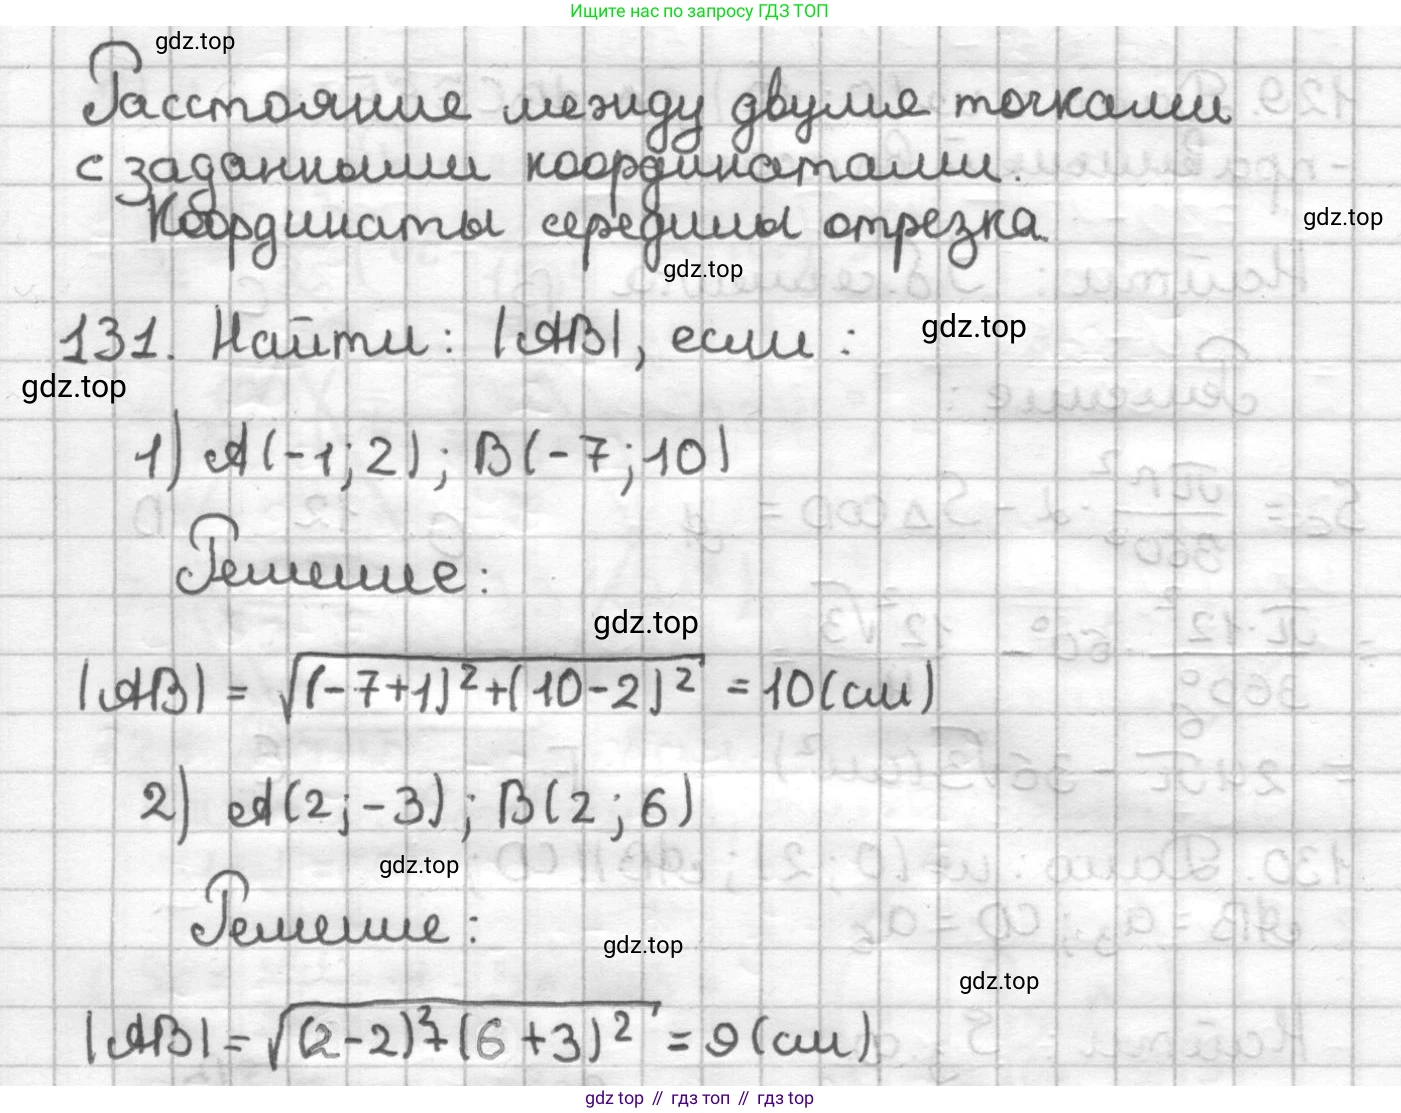 Ищите нас по запросу ГДЗ ТОП
gdz.top
Расстояние между двумя точками
с заданными координатами.
Координаты середины отрезка.
gdz.top
gdz.top
131. Найти: |AB|, если:
gdz.top
gdz.top
1) A(-1; 2); B(-7; 10)
Решение:
gdz.top
|AB| = √(-7+1)²+(10-2)² = 10(см)
2) A(2; -3); B(2; 6)
gdz.top
Решение:
gdz.top
gdz.top
|AB| = √(2-2)²+(6+3)² = 9(см)
gdz top // гдз топ // гдз top